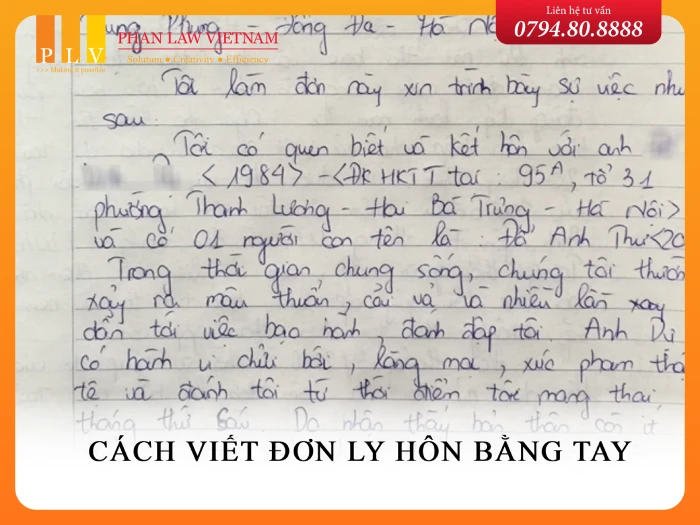 PLV
>>> Making it possible
PHAN LAW VIETNAM
Solution ● Creativity ● Efficiency
Liên hệ tư vấn
0794.80.8888
Phụng - Đống Đa - Hà Nộ
Tôi làm đơn này xin trình bày sự việc như
sau.
Tôi có quen biết và kết hôn với anh
<1984> - <ĐK HKTT tại: 95A, tổ 31
phường Thanh Lương - Hai Bà Trưng - Hà Nội>
và có 01 người con tên là: Đỗ Anh Thư <20
Trong thời gian chung sống, chúng tôi thườn
xảy ra mâu thuẫn, cãi vả và nhiều lần xảy
dẫn tới việc bạo hành, đánh đập tôi. Anh Dự
có hành vi chửi bới, lăng mạ, xúc phạm thậ
tệ và đánh tôi từ thời điểm tôi mang thai
tháng thứ sáu. Do nhận thấy bản thân còn ít
CÁCH VIẾT ĐƠN LY HÔN BẰNG TAY